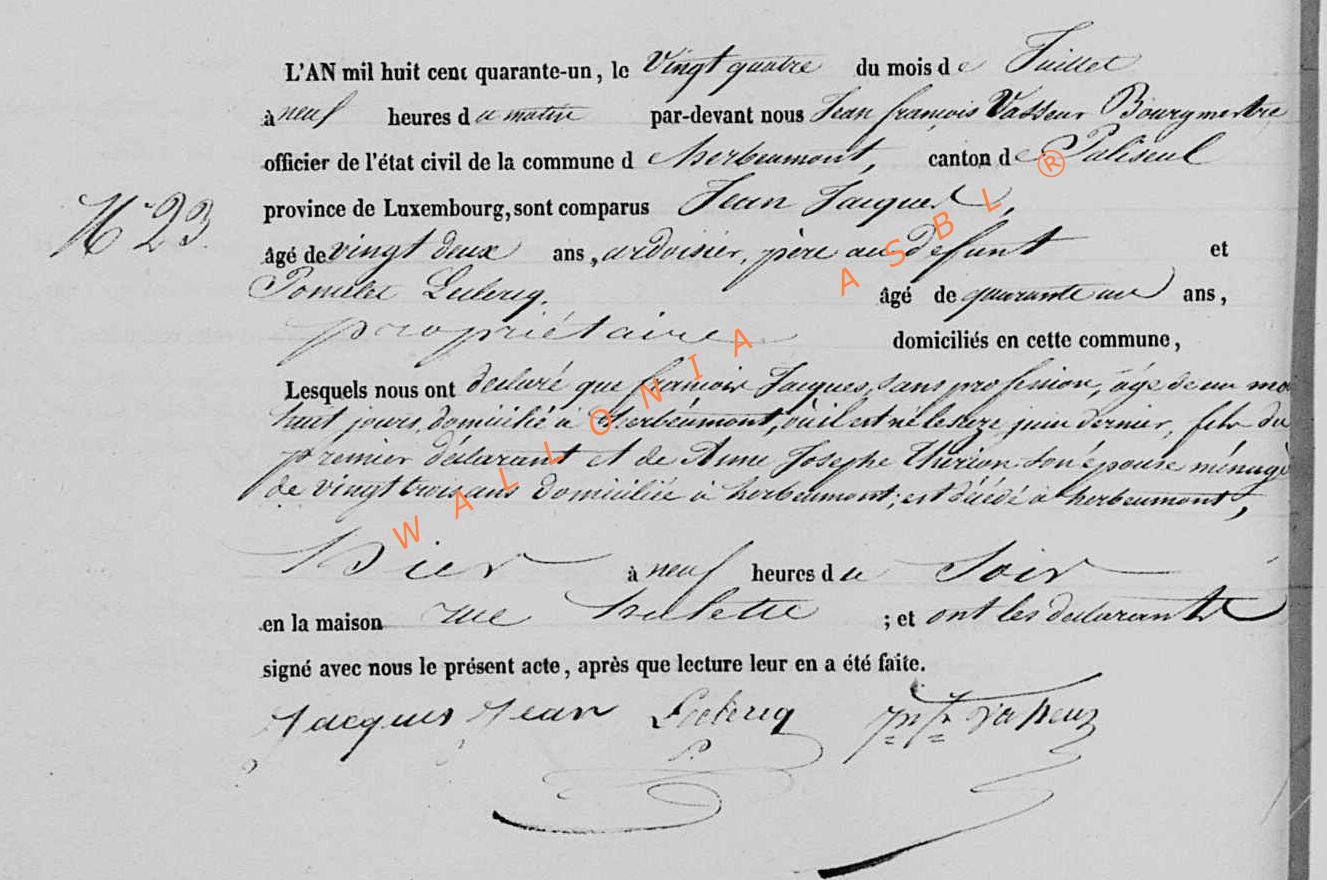 L'AN mil huit cent quarante-un, le Vingt quatre du mois de Juillet
à neuf heures du matin par-devant nous Jean françois Vasseur Bourgmestre
officier de l'état civil de la commune d'herbeumont, canton de Paliseul
N° 23.
province de Luxembourg, sont comparus Jean Jacques,
âgé de vingt deux ans, ardoisier, père au défunt et
Leclercq. âgé de quarante un ans,
propriétaire domiciliés en cette commune,
Lesquels nous ont déclaré que françois Jacques, sans profession, âgé de un mois
huit jours, domicilié à herbeumont, où il est né le seize juin dernier, fils du
premier déclarant et de Anne Josephe Thirion son épouse ménagère
de vingt trois ans domiciliée à herbeumont, est décédé à herbeumont,
hier à neuf heures du Soir
en la maison rue ; et ont les déclarants
signé avec nous le présent acte, après que lecture leur en a été faite.
Jacques Jean Leclercq Vasseur
P.
WALLONIA ASBL ®